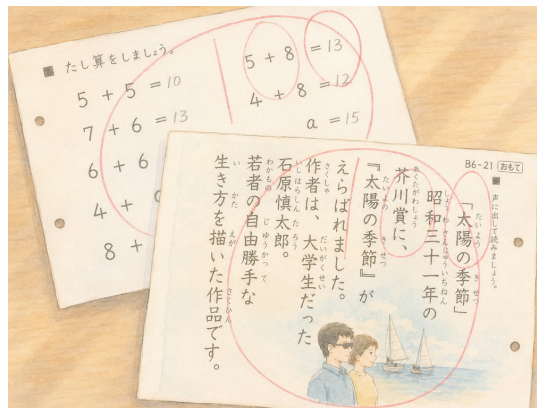 ■ たし算をしましょう。
5 + 5 =10
7 + 6 =13
6 + 6
4 +
8 +
5 + 8 =13
4 + 8 =12
a =15
B6-21 おもて
■ 声に出して読みましょう。
『太陽の季節』
昭和三十一年の
芥川賞に、
『太陽の季節』が
えらばれました。
作者は、大学生だった
石原慎太郎。
若者の自由勝手な
生き方を描いた作品です。